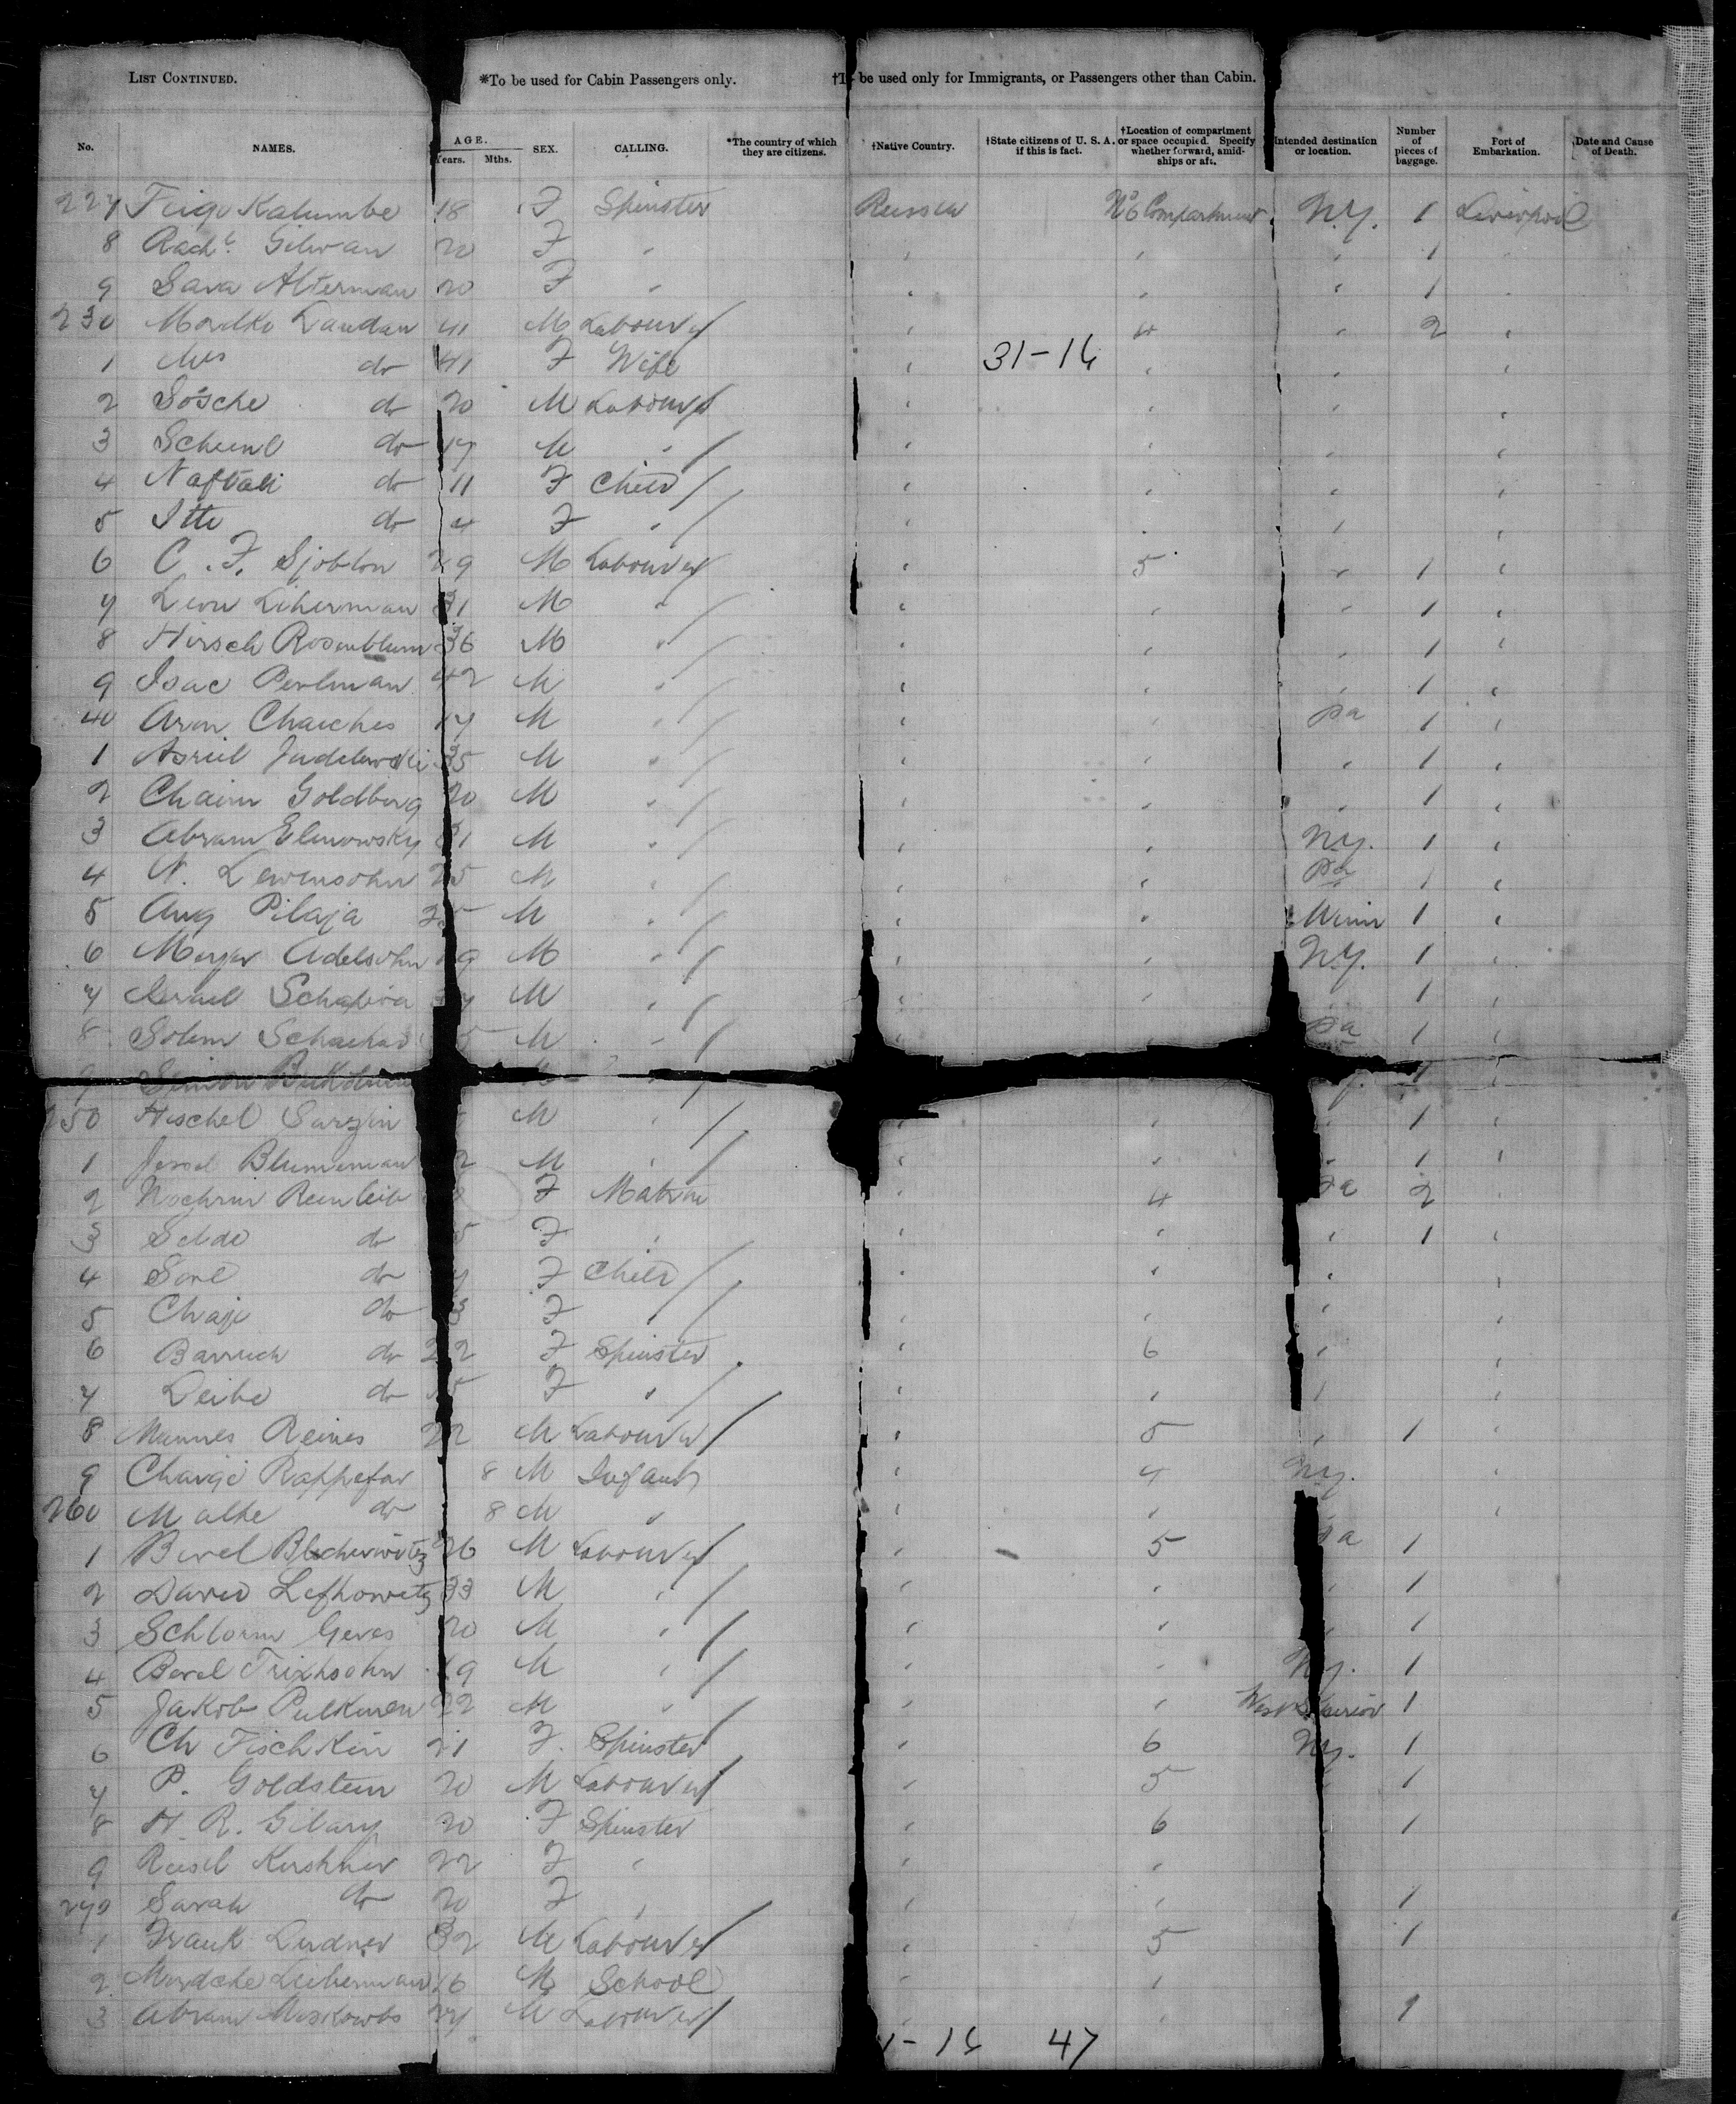 LIST CONTINUED. *To be used for Cabin Passengers only. be used only for Immigrants, or Passengers other than Cabin.
No. NAMES. AGE. Years. Mths. SEX. CALLING. *The country of which they are citizens. †Native Country. †State citizens of U. S. A. if this is fact. †Location of compartment or space occupied. Specify whether forward, amidships or aft. Intended destination or location. Number of pieces of baggage. Port of Embarkation. Date and Cause of Death.
227 Feige Kalumbe 18 F Spinster Russia No 6 Compartment N.Y. 1 Liverpool
8 Gilman 20 F " " " " 1
9 Sara Alterman 20 F " " " " 1 "
230 Mordko Landau 41 M Labourer " 4 " 2 "
1 Mrs do 41 F Wife " 31-16 " " "
2 Sosche do 20 M Labourer " " " "
3 Scheml do 17 M " " " " "
4 Naftali do 11 F Child " " " "
5 Itte do 4 F " " " " "
6 C. F. Sjoblon 29 M Labourer " 5 " 1 "
7 Leon Liherman 31 M " " " " 1 "
8 Hirsch Rosenblum 36 M " " " " 1 "
9 Isac Perlman 42 M " " " " 1 "
40 Aron Chaiches 17 M " " " Pa 1 "
1 Asriel Judelewski 35 M " " " " 1 "
2 Chaim Goldberg 20 M " " " " 1 "
3 Abram Elinowsky 31 M " " " N.Y. 1 "
4 N. Lewinsohn 25 M " " " Pa 1 "
5 Aug Pilaja M " " " Minn 1 "
6 Meyer Adelsohn 19 M " " " N.Y. 1 "
7 Israel Schapira M " " " " 1 "
8 Solem M " " " Pa 1 "
9 Simon M " 1 "
250 Hischel Sarzin M " " " " 1 "
1 Jossel Blumenman M " " " " 1 "
2 F Matron " 4 Pa 2 "
3 Selde do F " " " " 1 "
4 Sore do F Child " " " "
5 Chaje do 3 F " " " " "
6 Barruch do 22 F Spinster " 6 " "
7 Leibe do F " " " " "
8 Mannes Reines 22 M Labourer " 5 " 1 "
9 Chaije Rappefor 8 M Infant " 4 N.Y. "
260 Malke do 8 M " " " "
1 Berel 26 M Labourer " 5 Pa 1
2 David Lefkowitz 33 M " " " " 1
3 Schlorm Geves 20 M " " " " 1
4 Berel 19 M " " " N.Y. 1
5 Jakob Pulkinen 22 M " " " West Superior 1
6 Ch Fischkin 21 F. Spinster " 6 N.Y. 1
7 P. Goldstein 20 M Labourer " 5 1
8 H. R. Gilary 20 F Spinster " 6 1
9 Reisel Kershner 22 F " " "
270 Sarah do 20 F " " " 1
1 Frank Lindner 32 M Labourer " 5 1
2 Mordche Leiberman 16 M School " "
3 Abram Moskowbs 27 M Labourer " " 1
1-16 47